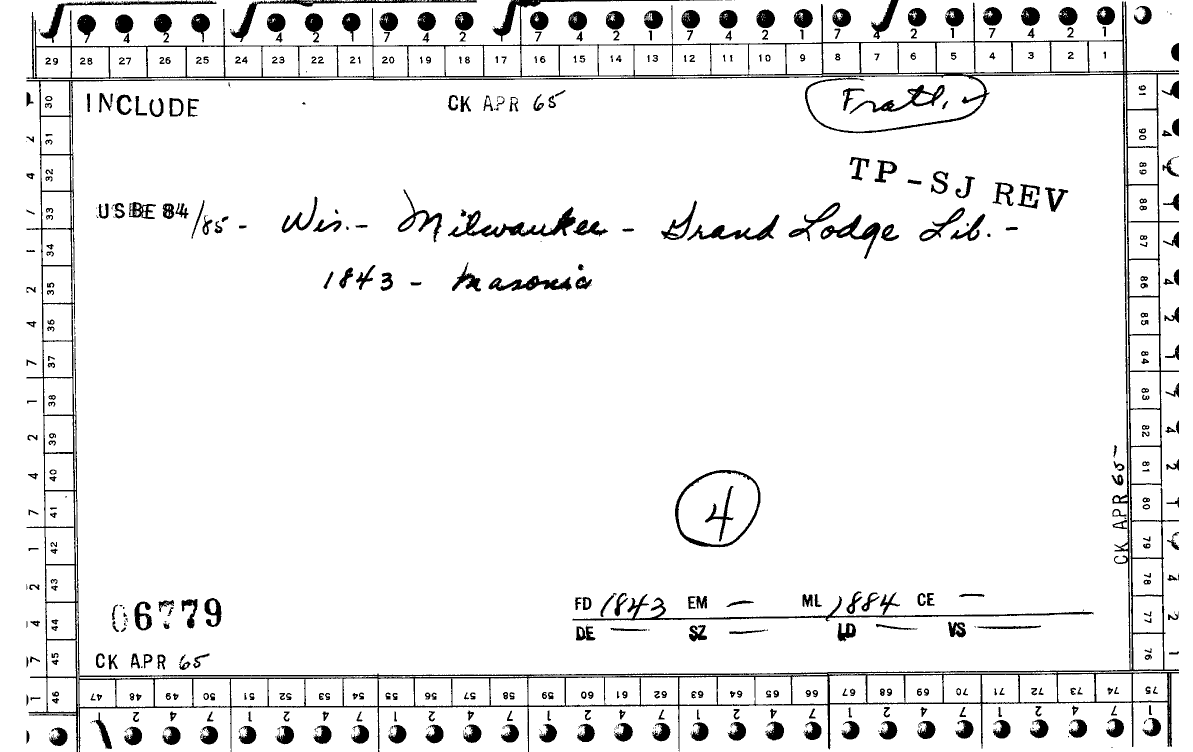 7 4 2 1 7 4 2 1 7 4 2 1 7 4 2 1 7 4 2 1 7 4 2 1 7 2 1
29 28 27 26 25 24 23 22 21 20 19 18 17 16 15 14 13 12 11 10 9 8 7 6 5 4 3 2 1
INCLUDE
CK APR 65
TP-SJ REV
USBE 84/85 - Wis. - Milwaukee - Grand Lodge Lib. -
1843 - Masonic
4
06779
FD 1843 EM — ML 1884 CE —
DE — SZ — LD — VS —
CK APR 65
CK APR 65
30 31 32 33 34 35 36 37 38 39 40 41 42 43 44 45 46
91 90 89 88 87 86 85 84 83 82 81 80 79 78 77 76
47 48 49 50 51 52 53 54 55 56 57 58 59 60 61 62 63 64 65 66 67 68 69 70 71 72 73 74 75